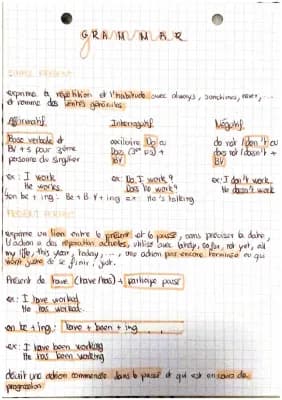 GRAMMAR
SIMPLE PRESENT
exprime la répétition et l'habitude avec always, sometimes, never, ...
et comme des vérités générales
Affirmatif Interrogatif Négatif
Base verbale et auxiliaire Do ou do not / don't ou
BV + s pour 3ème Does (3e ps) + does not / doesn't +
personne du singulier BV BV
ex : I work ex : Do I work? ex : I don't work
He works Does he work? He doesn't work
en be + ing : Be + BV + ing ex : He's talking
PRESENT PERFECT
exprime un lien entre le présent et le passé, sans préciser la date,
L'action a des répercutions actuelles, utilisé avec lately, so far, not yet, all
my life, this year, today, ..., une action pas encore terminée ou qui
vient juste de se finir, just.
Présent de have (have/has) + participe passé
ex : I have worked
He has worked
en be + ing : have + been + ing
ex : I have been working
He has been working
décrit une action commencée dans le passé et qui est en cours de
progression